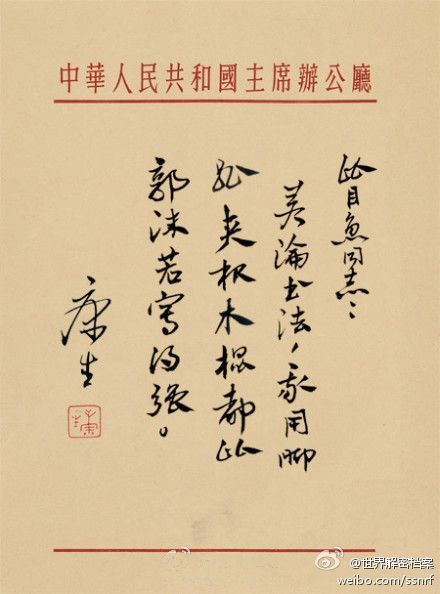 中華人民共和國主席辦公廳
比目魚同志：
若論书法，我用脚
趾夹根木棍都比
郭沫若寫得强。
康生
@世界解密档案
weibo.com/ssnrf